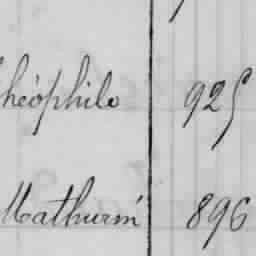 Théophile 925
Mathurin 896